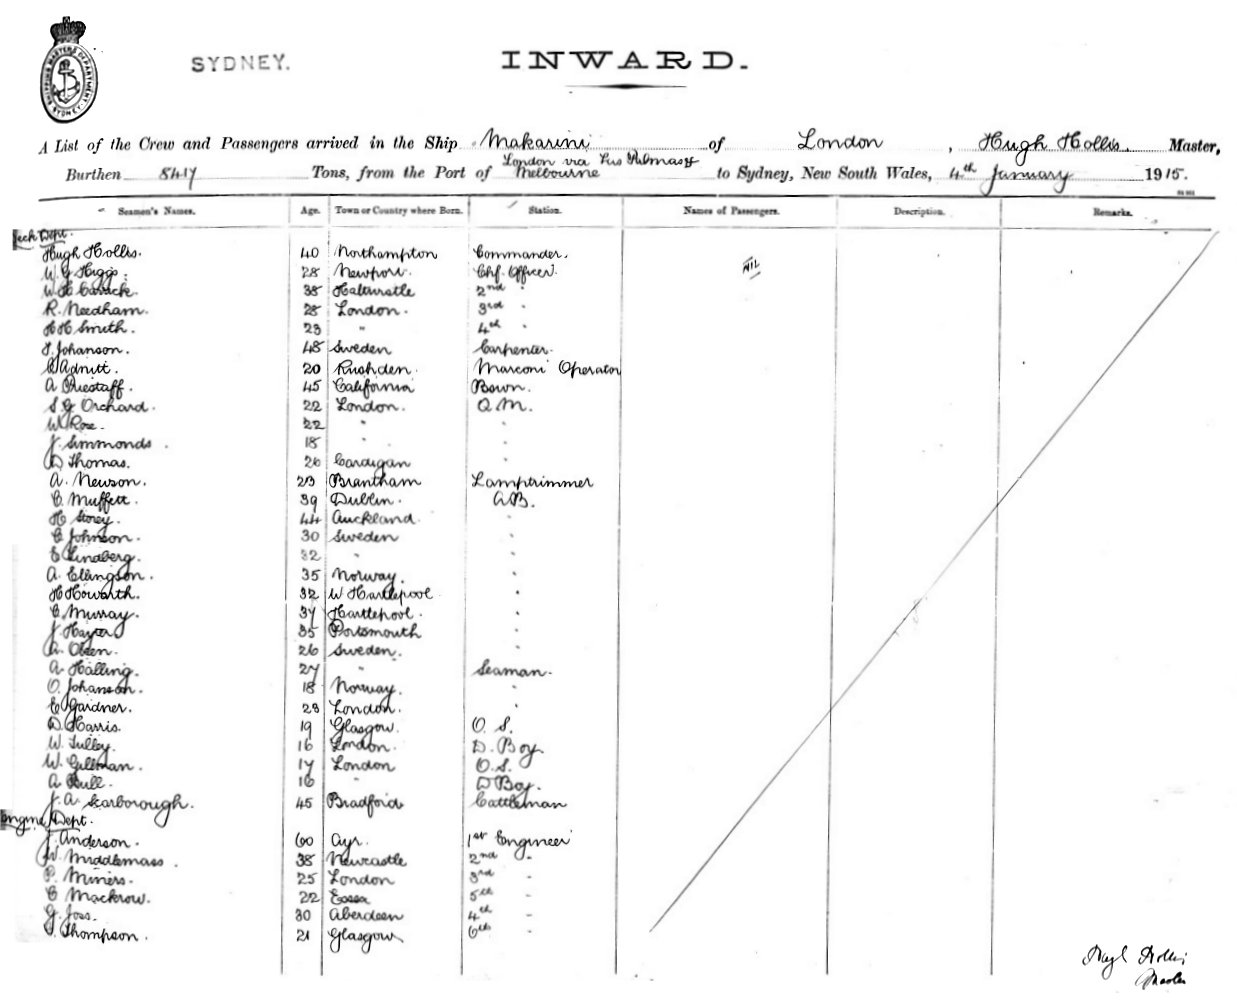 SHIPPING MASTERS DEPARTMENT. SYDNEY
SYDNEY.
INWARD.
A List of the Crew and Passengers arrived in the Ship Makarini of London, Hugh Hollis. Master,
London via Las Palmas &
Burthen 8417 Tons, from the Port of Melbourne to Sydney, New South Wales, 4th January 1915.
Seamen's Names. Age. Town or Country where Born. Station. Names of Passengers. Description. Remarks.
Deck Dept.
Hugh Hollis. 40 Northampton Commander.
W. G. Higgs. 28 Newport. Chf. Officer. NIL
W. H. Carrick. 38 Haltwistle 2nd "
R. Needham. 28 London. 3rd "
H H Smith. 23 " 4th "
Johanson. 48 Sweden Carpenter.
Adnitt. 20 Rushden. Marconi Operator
A Priestaff. 45 California Bosun.
S. G Orchard. 22 London. Q M.
W. Rose. 22 " "
J. Simmonds. 18 " "
D Thomas. 26 Cardigan "
A. Newson. 23 Brantham Lamptrimmer
C. Muffett. 39 Dublin. A.B.
H Storey. 44 Auckland. "
C Johnson. 30 Sweden "
E Lindberg. 32 " "
A. Ellingson. 35 Norway. "
H Howarth. 32 W Hartlepool "
C. Murray. 37 Hartlepool. "
J. 35 Portsmouth "
A. Olsen. 26 Sweden. "
A. Halling. 27 " Seaman.
O. Johanson. 18 Norway. "
E Gardner. 23 London. "
D. Harris. 19 Glasgow. O. S.
W. Tulley. 16 London. D. Boy.
W. Gillman. 17 London O.S.
A Bull. 16 " D Boy.
J. A. Scarborough. 45 Bradford Cattleman
Engine Dept.
J. Anderson. 60 Ayr. 1st Engineer
W. Middlemass. 38 Newcastle 2nd "
P. Miners. 25 London 3rd "
C Mackrow. 22 Essex 5th "
G. Joss. 30 Aberdeen 4th "
Thompson. 21 Glasgow 6th "
Hugh Hollis
Master